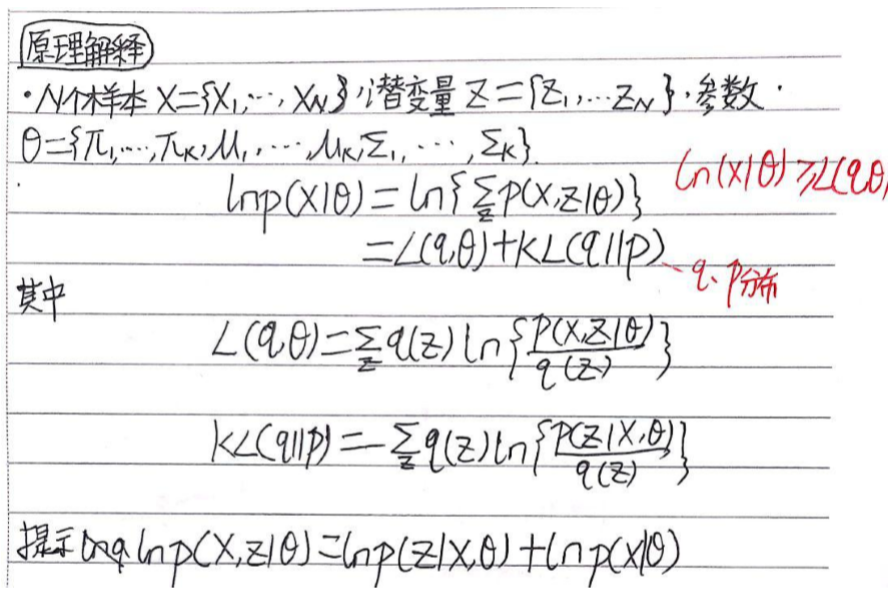 原理解释
·N个样本 X={X₁,…, X_N} 潜变量 Z={Z₁,…Z_N}.参数.
θ={π₁,…,π_K,μ₁,…,μ_K,Σ₁,…,Σ_K}.
lnp(X|θ)=ln{∑_z p(X,Z|θ)}
ln(X|θ)≥L(q,θ)
=L(q,θ)+KL(q||p)
q、p分布
其中
L(q,θ)=∑_z q(z)ln{p(X,Z|θ)/q(z)}
KL(q||p)=-∑_z q(z)ln{p(Z|X,θ)/q(z)}
提示 lnp(X,Z|θ)=lnp(Z|X,θ)+lnp(X|θ)